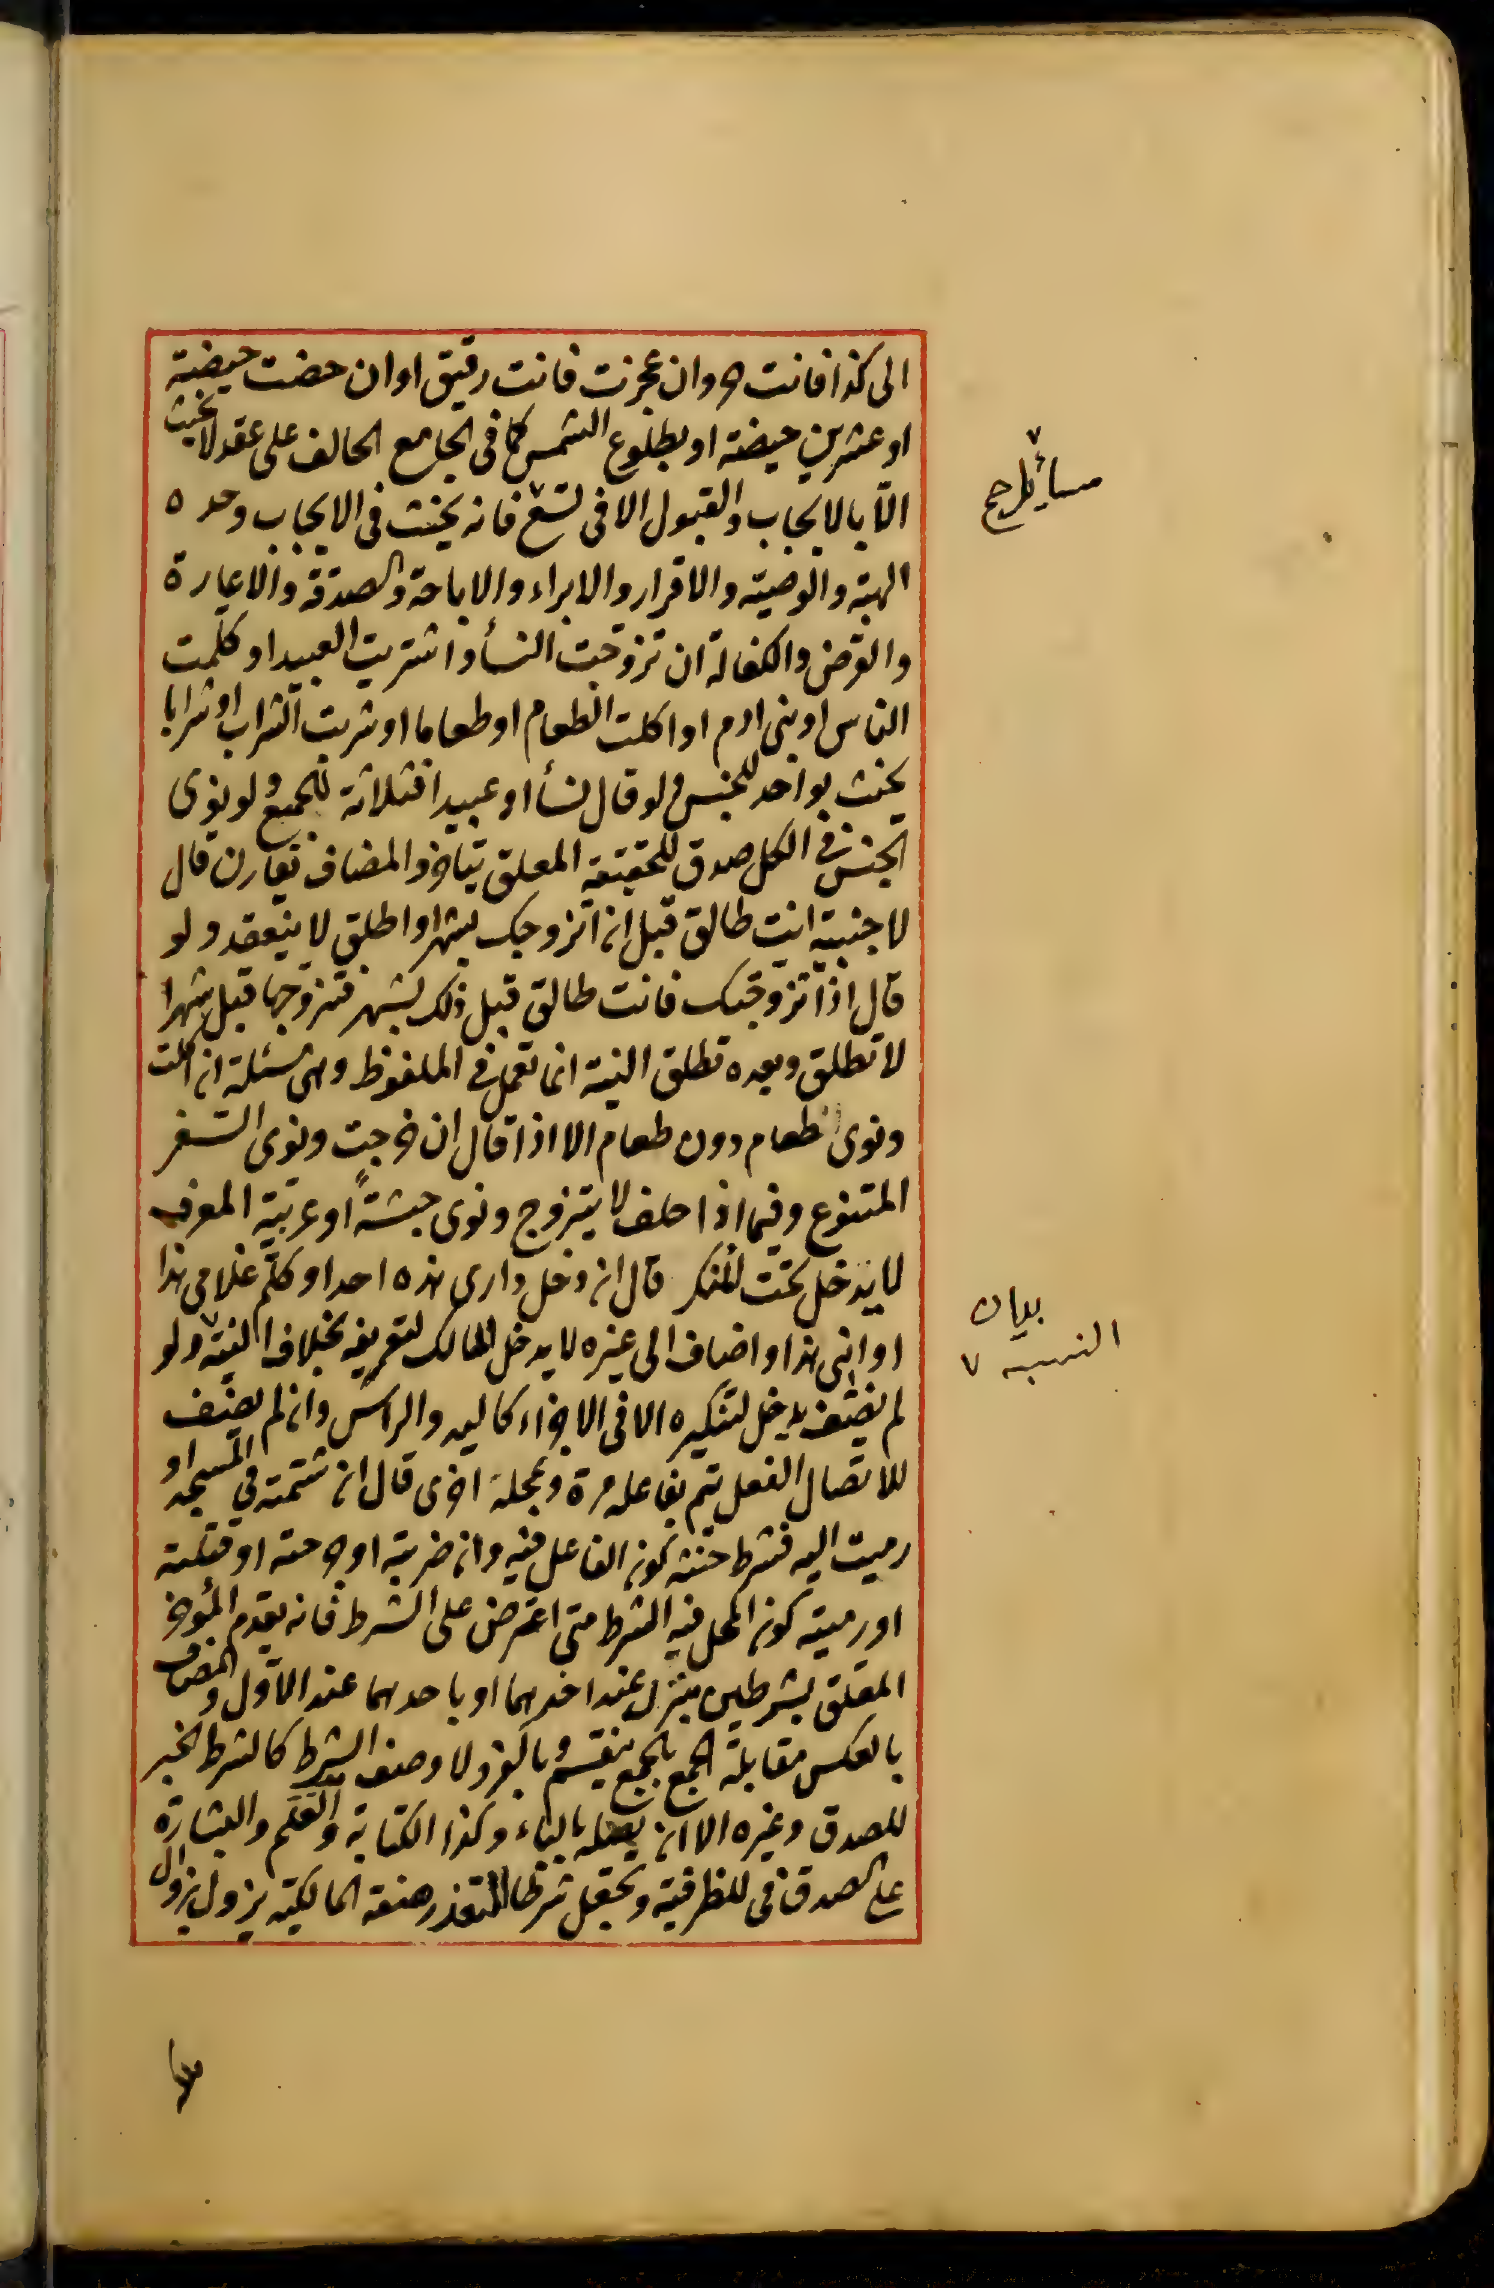 الى كذا فانت حر وان عجزت فانت رقيق او ان حضت حيضة
او عشرين حيضة او بطلوع الشمس كما فى الجامع الحالف على عقد لا يحنث
الا بالايجاب والقبول الا فى تسع فانه يحنث فى الايجاب وحده
الهبة والوصية والاقرار والابراء والاباحة والصدقة والاعارة
والقرض والكفالة ان تزوجت النسأ واشتريت العبيد او كلمت
الناس او بنى ادم او اكلت الطعام او طعاما او شربت الشراب او شرابا
يحنث بواحد للجنس ولو قال نسأ او عبيدا فثلاثة للجمع ولو نوى
الجنس فى الكل صدق للحقيقة المعلق يتاخر والمضاف يقارن قال
لاجنبية انت طالق قبل ان اتزوجك بشهر او اطلق لا ينعقد ولو
قال اذا تزوجتك فانت طالق قبل ذلك بشهر فتزوجها قبل شهرا
لا تطلق وبعده تطلق النية انما تعمل فى الملفوظ وهى مسئلة ان اكلت
ونوى طعام دون طعام الا اذا قال ان خرجت ونوى السفر
المتنوع وفيما اذا حلف لا يتزوج ونوى حبشة او عربية المعرف
لا يدخل تحت المنكر قال ان دخل دارى هذه احد او كلم غلامى هذا
او ابنى هذا او اضاف الى غيره لا يدخل المالك لتعريفه بخلاف النية ولو
لم يضف يدخل لتنكيره الا فى الاجزاء كاليد والراس وان لم يضف
للاتصال الفعل يتم بفاعله مرة وبمحله اخرى قال ان شتمته فى المسجد او
رميت اليه فشرط حنثه كون الفاعل فيه وان ضربته او جرحته او قتلته
او رميته كون المحل فيه الشرط متى اعترض على الشرط فانه يقدم المؤخر
المعلق بشرطين ينزل عند اخرهما او باحدهما عند الاول والمضاف
بالعكس مقابلة الجمع بالجمع ينقسم وبالفرد لا وصف الشرط كالشرط الخبر
للصدق وغيره الا ان يصله بالباء وكذا الكتابة والعلم والبشارة
على الصدق فى للظرفية وتجعل شرطا للتعذر صفة المالكية يزول بزوال
مسائل ج
بيان
النسبه ٧